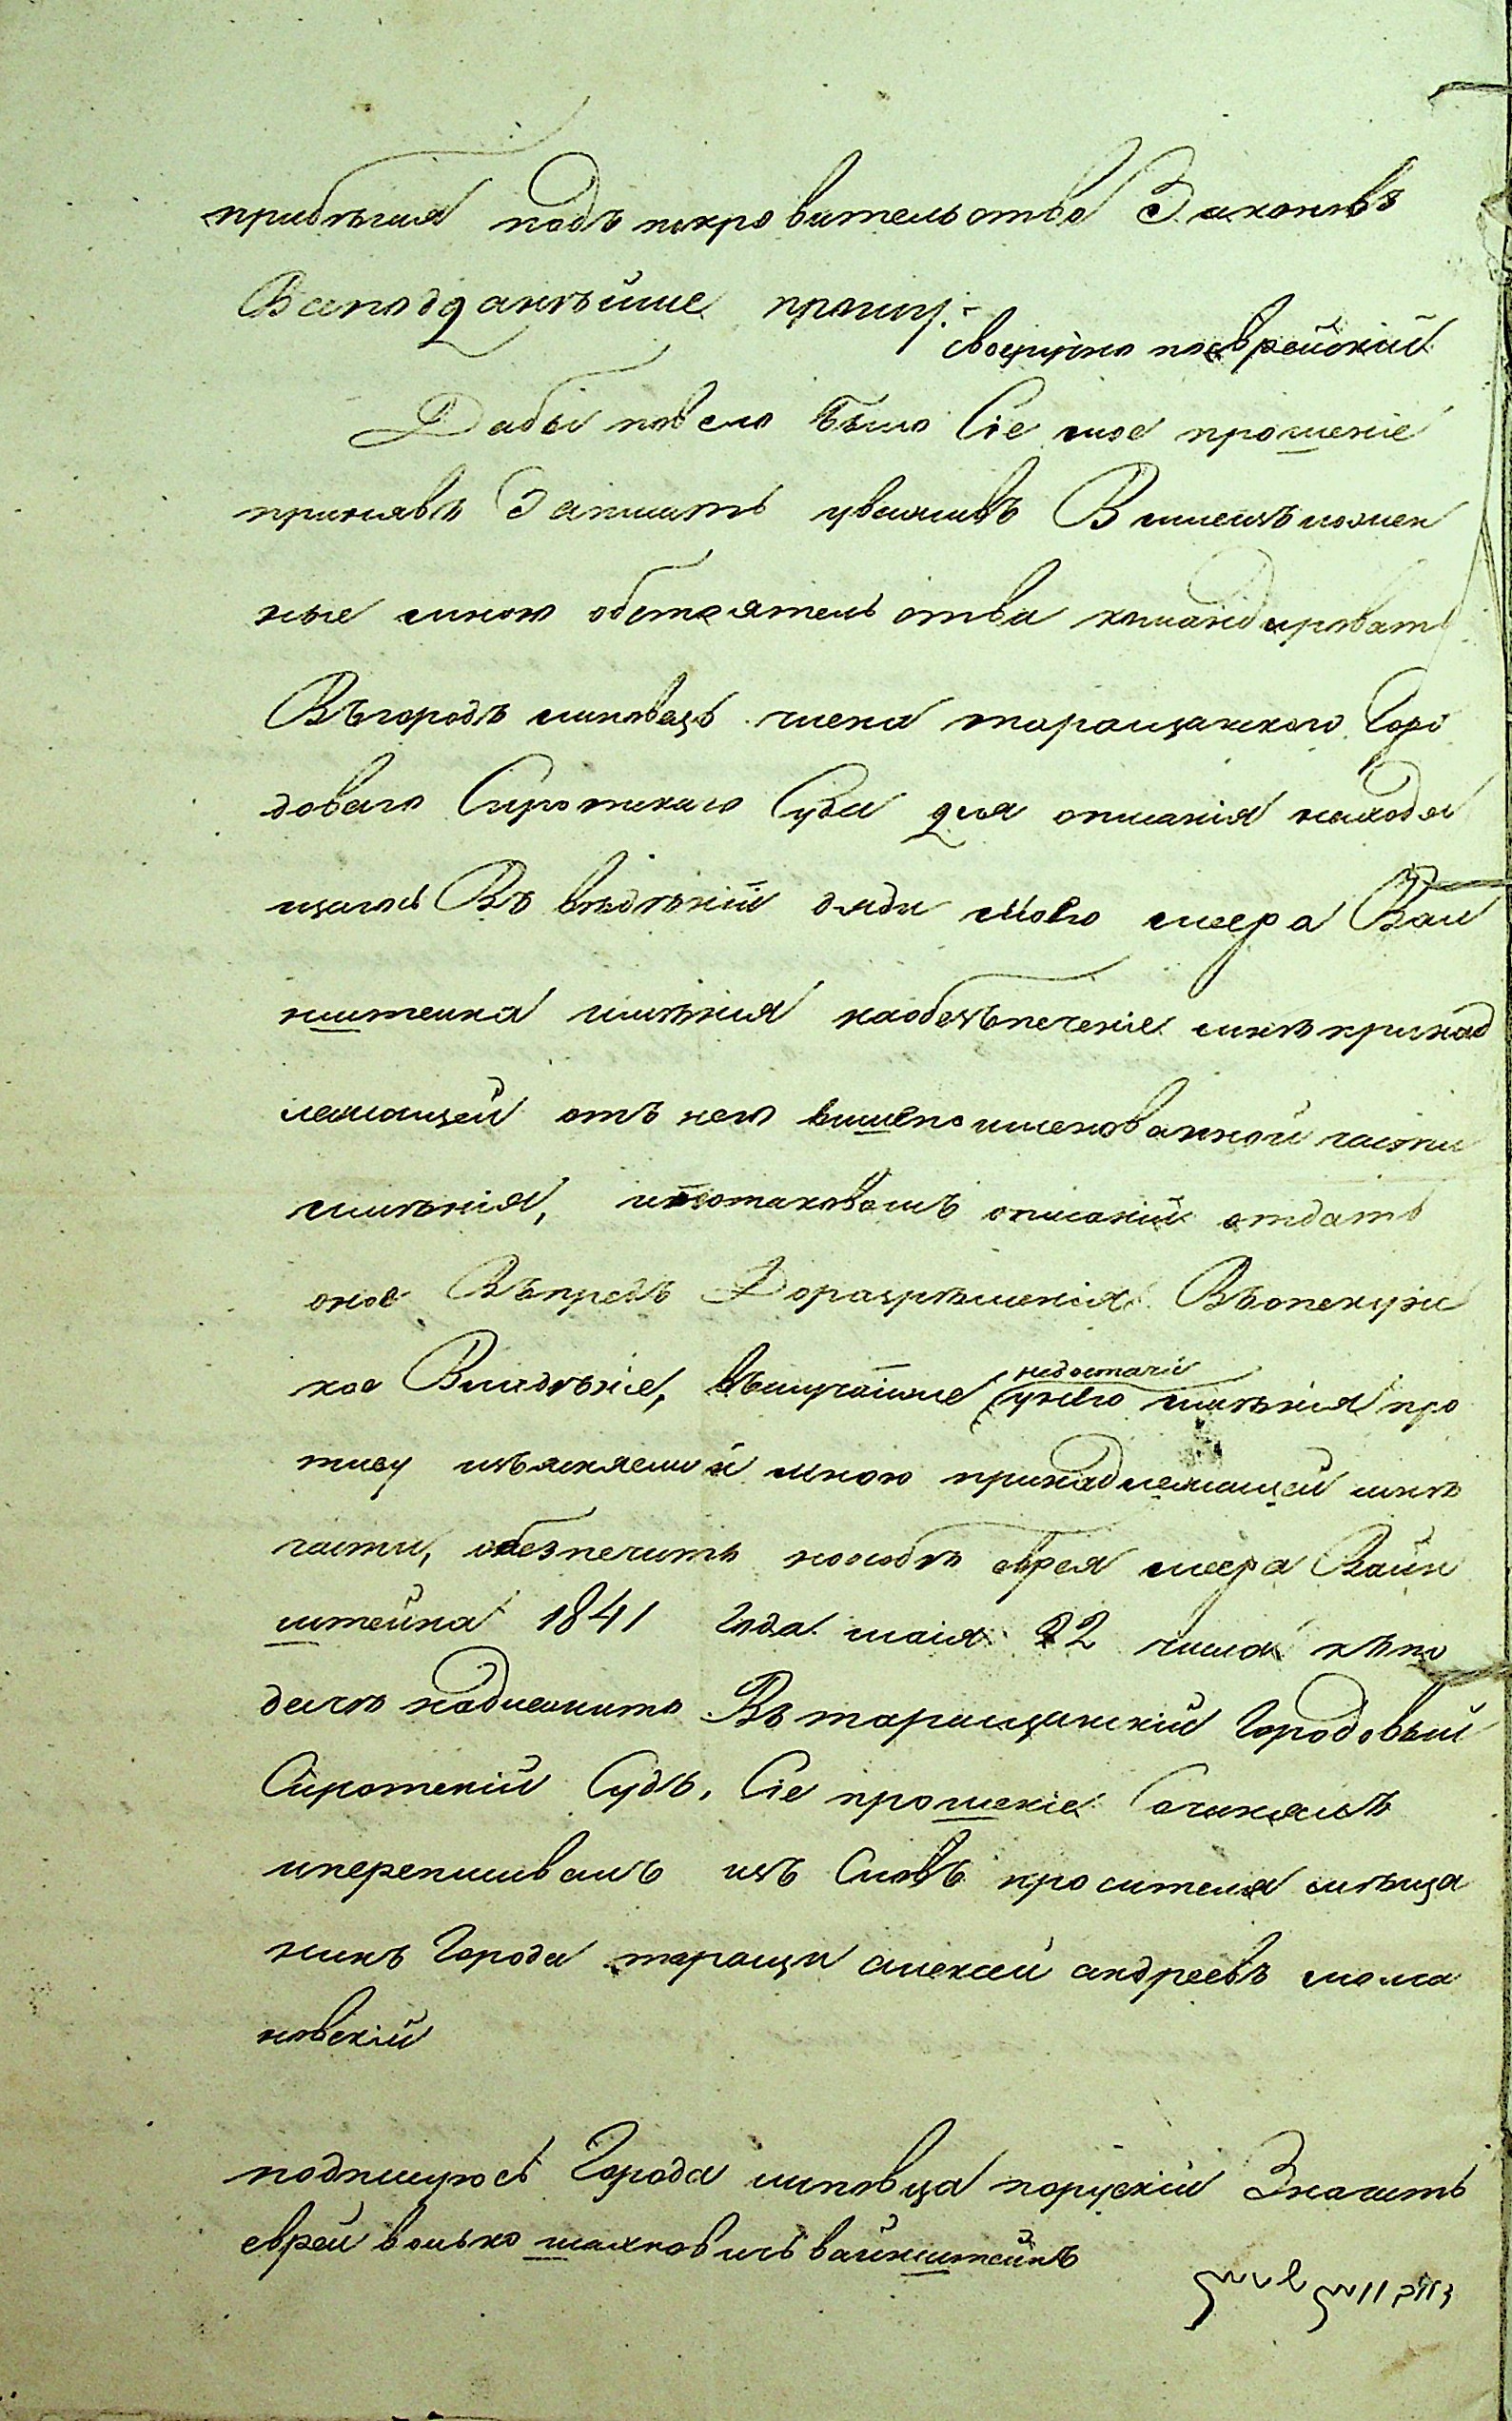 прибѣгая подъ покровительство Законовъ
Всеподданѣйше прошу:-
своеручно поеврейский
Дабы повело было Сіе мое прошеніе
принявъ Записать уваживъ Вишеизъяснен
ные мною обстоятельства командировать
Въгородъ липовецъ члена таращанского Горо
доваго Сиротскаго Суда для описанія находя
щагось Въ вѣдѣніи дяди моего меера Ваи
нштеина имѣния наобезъпеченіе мнѣ принад
лежащей отъ него вишепоименованной части
имѣния, ипотаковомъ описаніи отдать
оное Въпредь Доразрѣшения Въопекунс
кое Владѣніе, въслучаиже недостачи
унего имѣния про
тиву изъясняемой мною принадлежащей мнѣ
части, обезпечить насобѣ еврея меера Вайн
штейна 1841 Года маия 22 числа къпо
дачѣ надлежить Въ таращанский Городовый
Сиротский Судъ, Сіе прошеніе Сочинялъ
иперепишвалъ изъ Словъ просителя мѣща
нинъ Города таращи алексей андреевъ мома
новский
подпишуюсь Города липовца поруский Значить
еврей волько шахновичь вайнштейнъ